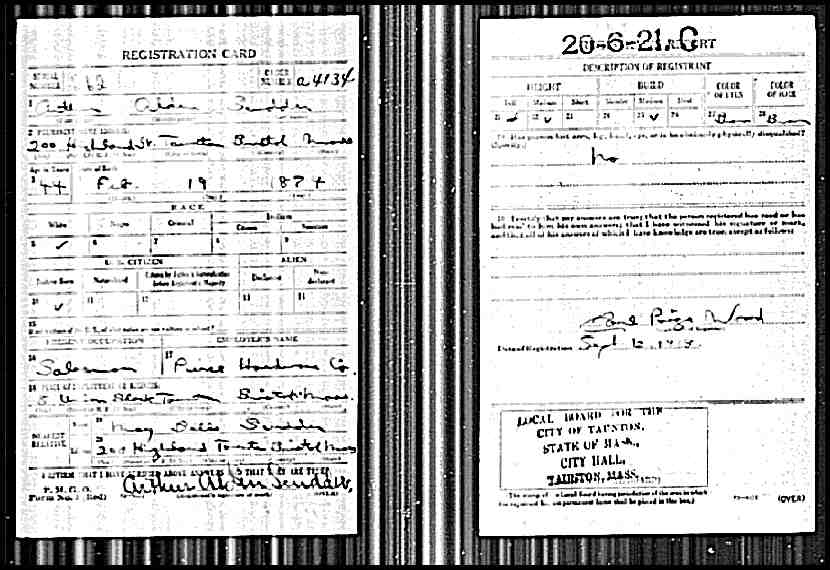 REGISTRATION CARD
SERIAL NUMBER 62 ORDER NUMBER a4134
1 Arthur Alden
2 PERMANENT HOME ADDRESS:
200 Highland St. Taunton Bristol Mass
Age in Years Date of Birth
3 44 Feb 19 1874
RACE
White Negro Oriental Indian
Citizen
5 ✓ 6 7 8 9
U. S. CITIZEN ALIEN
Native Born Naturalized Declarant Non-declarant
10 ✓ 11 12 13 14
15
PRESENT OCCUPATION EMPLOYER'S NAME
16 Salesman 17 Pierce Hardware Co.
18 PLACE OF EMPLOYMENT OR BUSINESS:
Union Block Taunton Bristol Mass.
NEAREST RELATIVE
Name 19 May Belle
20 200 Highland Taunton Bristol Mass
I AFFIRM THAT I HAVE VERIFIED ABOVE ANSWERS AND THAT THEY ARE TRUE
P. M. G. O.
Form No. 1 (Red) Arthur Alden (OVER)
20-6-21. C REPORT
DESCRIPTION OF REGISTRANT
HEIGHT BUILD COLOR OF EYES COLOR OF HAIR
Tall Medium Short Slender Medium Stout
21 22 ✓ 23 24 25 ✓ 26 27 28
29 Has person lost arm, leg, hand, eye, or is he obviously physically disqualified?
(Specify.)
No
30 I certify that my answers are true; that the person registered has read or has
had read to him his own answers; that I have witnessed his signature or mark,
and that all of his answers of which I have knowledge are true, except as follows:
Wood
Date of Registration Sept 12, 1918.
LOCAL BOARD FOR THE
CITY OF TAUNTON,
STATE OF MASS.,
CITY HALL,
TAUNTON, MASS.
(The stamp of the Local Board having jurisdiction of the area in which
the registrant has his permanent home shall be placed in this box.)
(OVER)